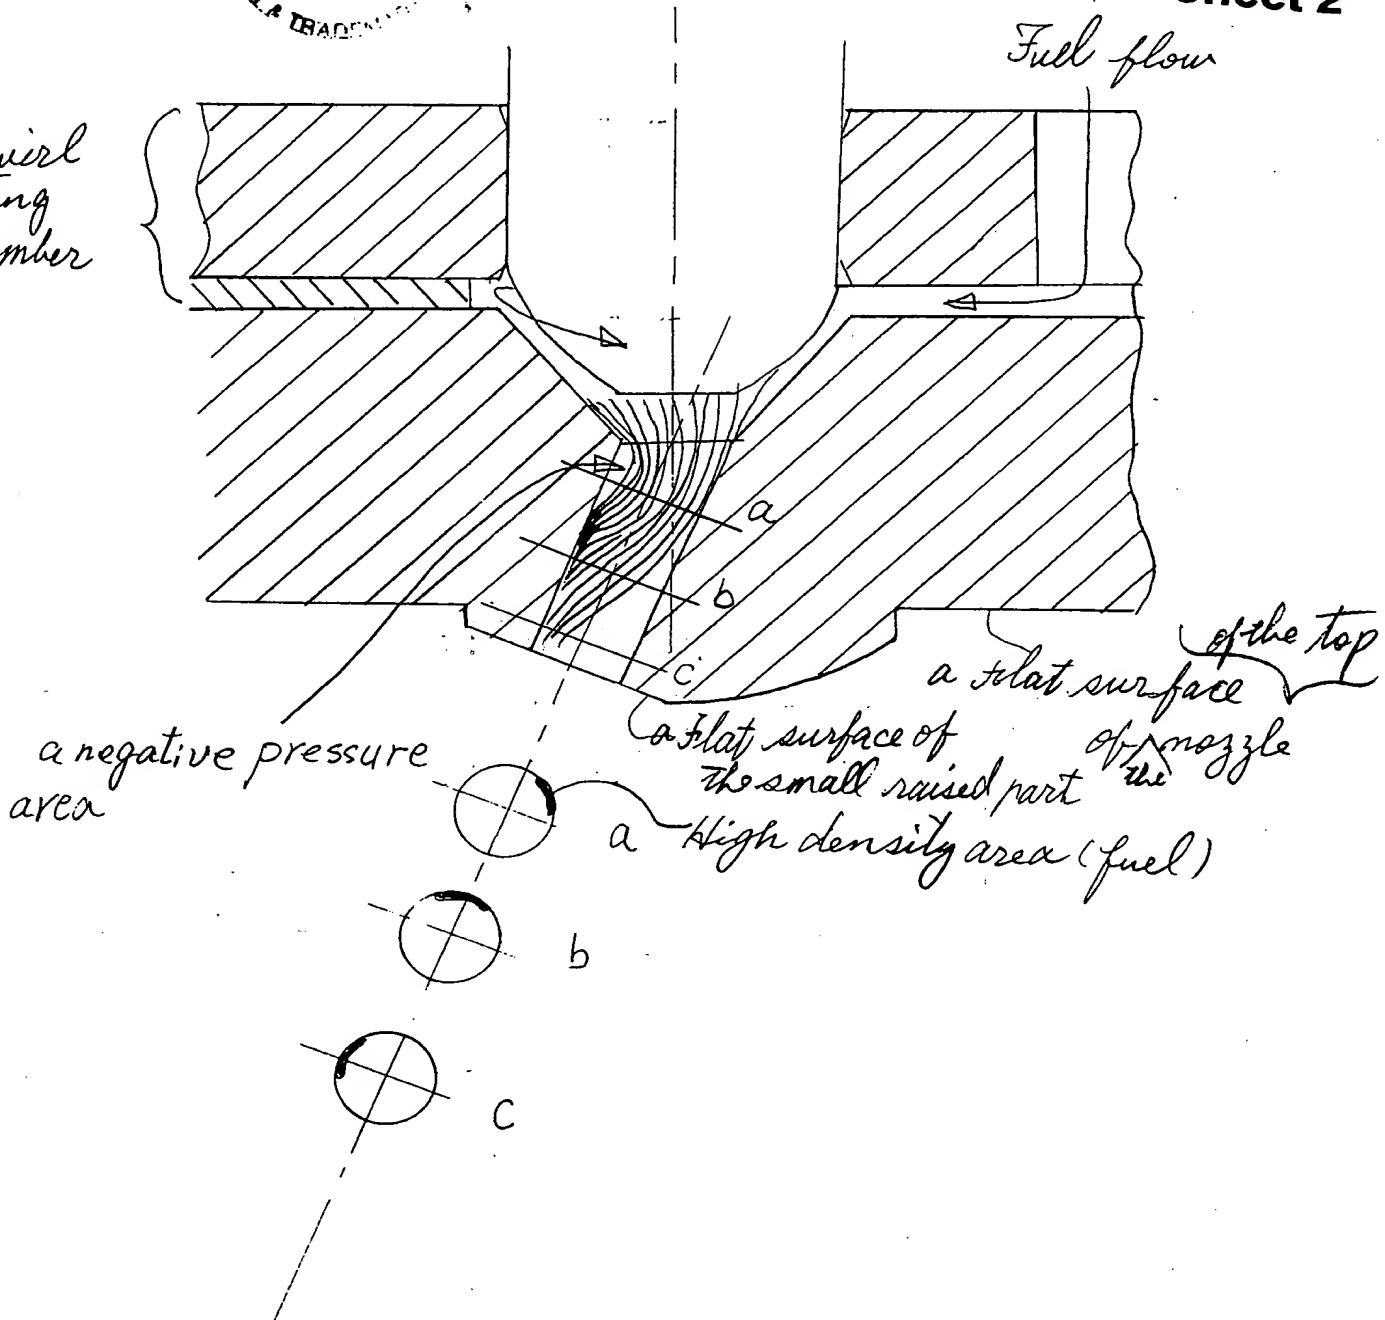 Sheet 2
Fuel flow
a
b
c
of the top
a Flat surface
of the nozzle
a Flat surface of
the small raised part
a negative pressure
area
a High density area (fuel)
b
c